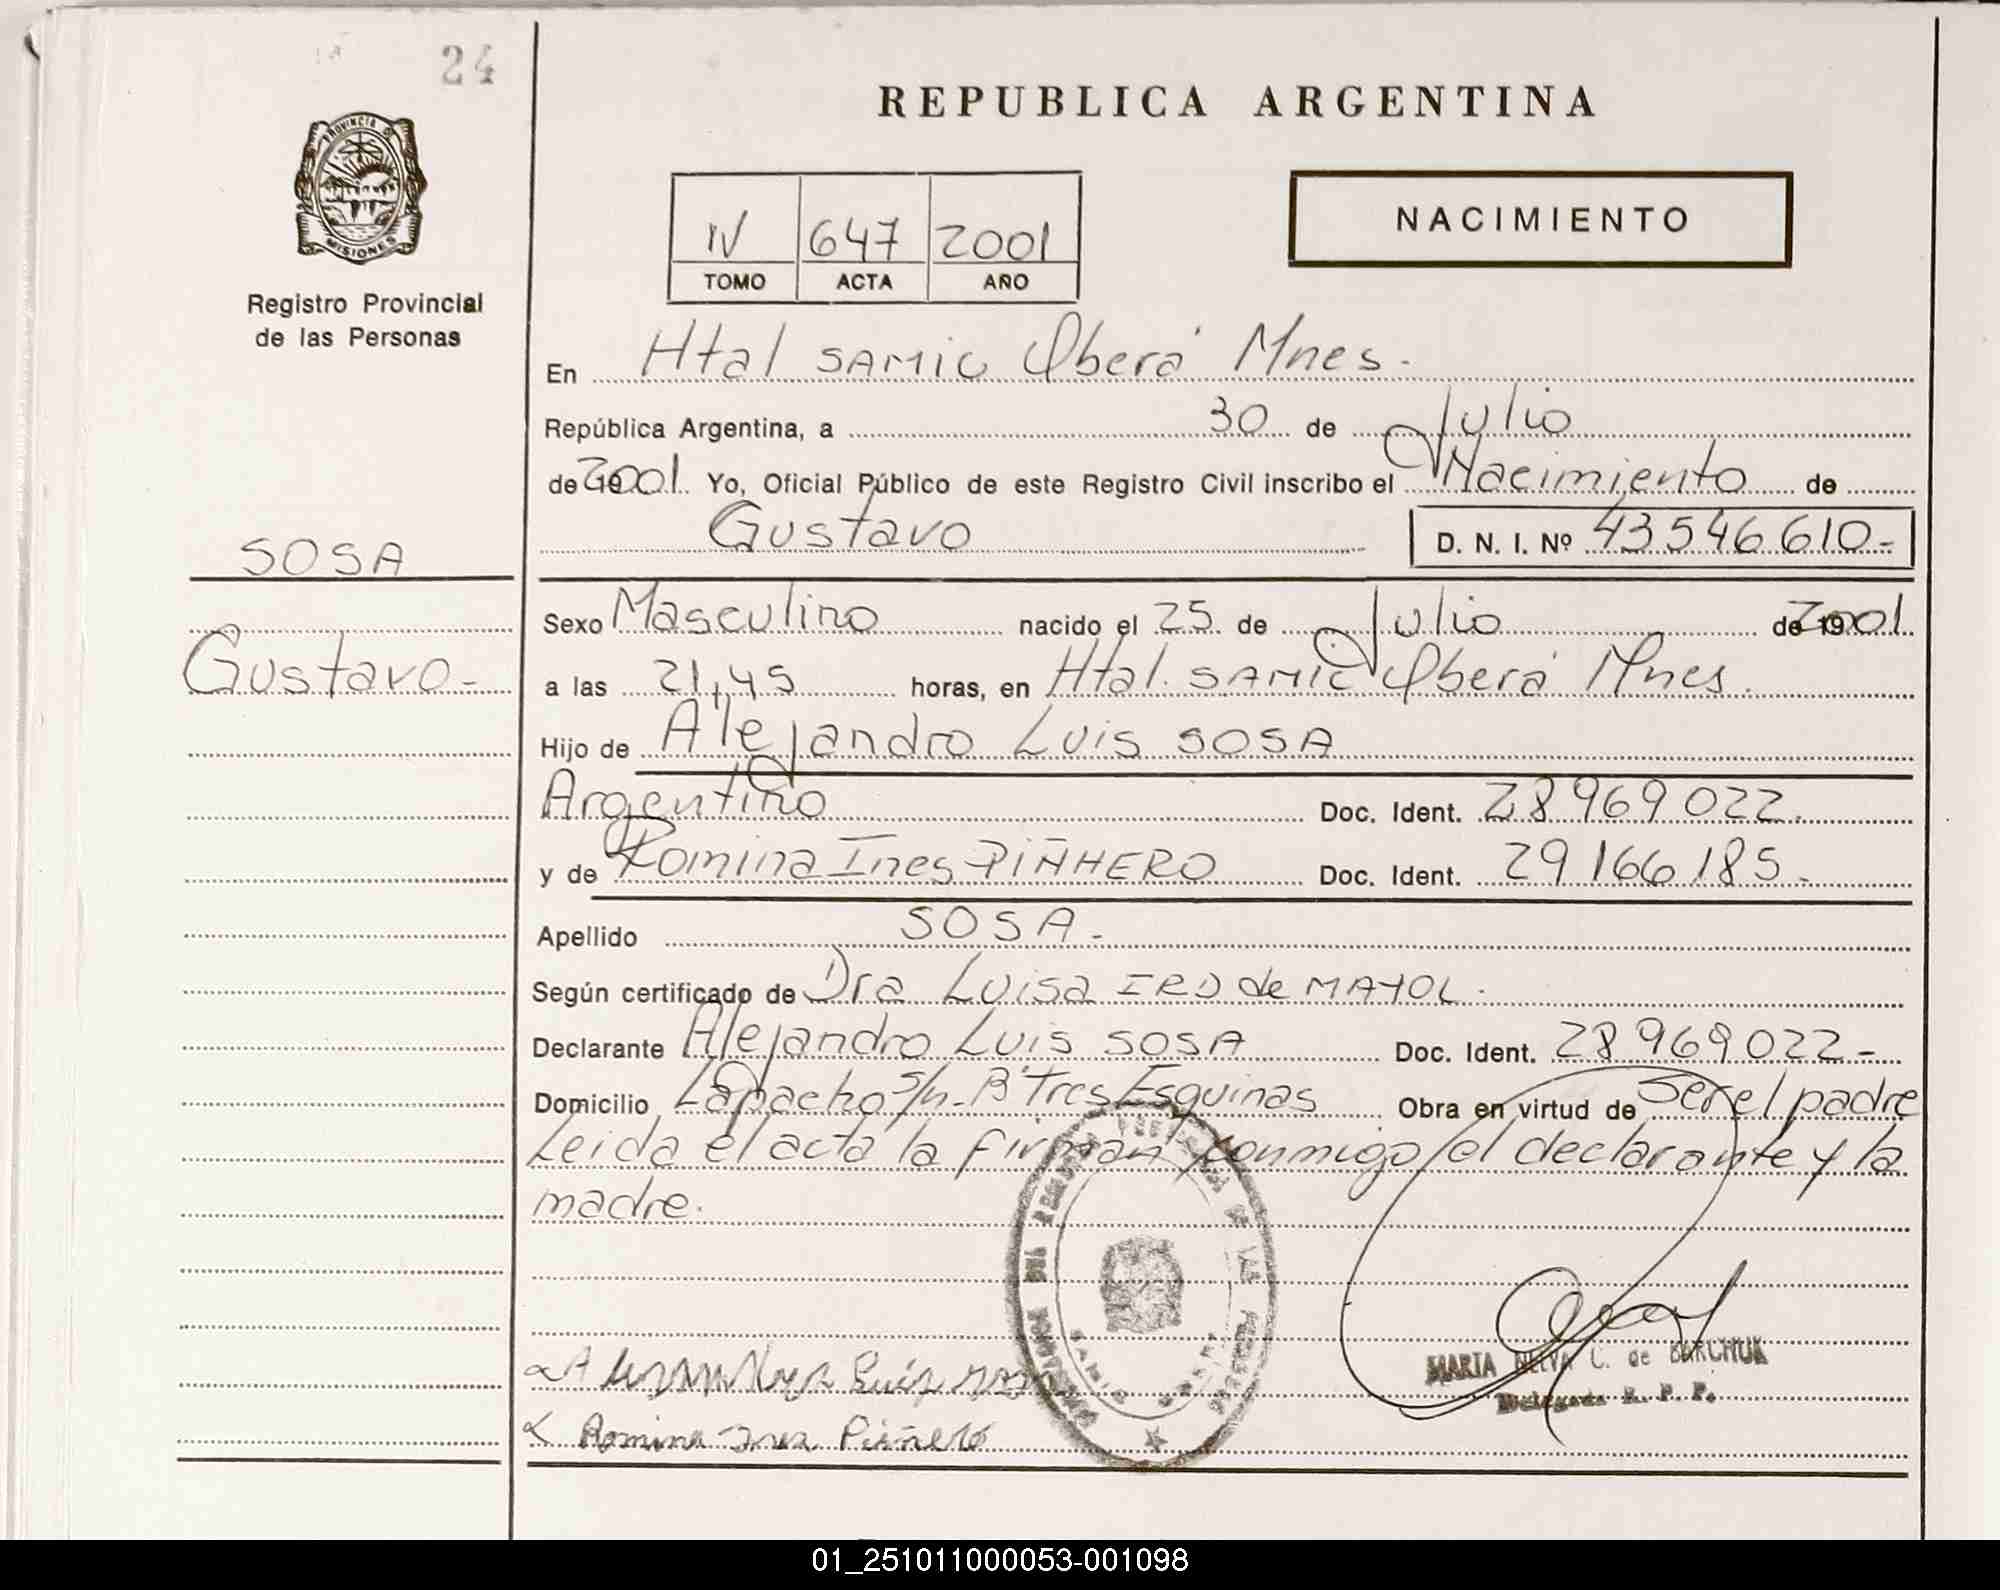 24
PROVINCIA DE
MISIONES
Registro Provincial
de las Personas
REPUBLICA ARGENTINA
NACIMIENTO
IV 647 2001
TOMO ACTA AÑO
En Htal SAMIC Oberá Mnes.
República Argentina, a 30 de Julio
de 2001. Yo, Oficial Público de este Registro Civil inscribo el Nacimiento de
Gustavo D. N. I. Nº 43546610-
SOSA
Gustavo-
Sexo Masculino nacido el 25 de Julio de 2001.
a las 21,45 horas, en Htal. SAMIC Oberá Mnes.
Hijo de Alejandro Luis SOSA
Argentino Doc. Ident. 28969022.
y de Romina Ines PIÑHERO Doc. Ident. 29166185-
Apellido SOSA.-
Según certificado de Dra Luisa IRD de MAYOL.
Declarante Alejandro Luis SOSA Doc. Ident. 28969022-
Domicilio Lapacho s/n- Bº Tres Esquinas Obra en virtud de ser el padre
Leida el acta la firman conmigo el declarante y la
madre.
MARIA C. de BARCHUK
Delegada R. P. P.
Romina Ines Piñero
01_251011000053-001098